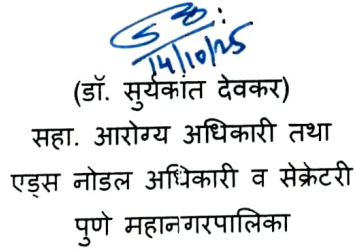 14/10/25
(डॉ. सुर्यकांत देवकर)
सहा. आरोग्य अधिकारी तथा
एड्स नोडल अधिकारी व सेक्रेटरी
पुणे महानगरपालिका